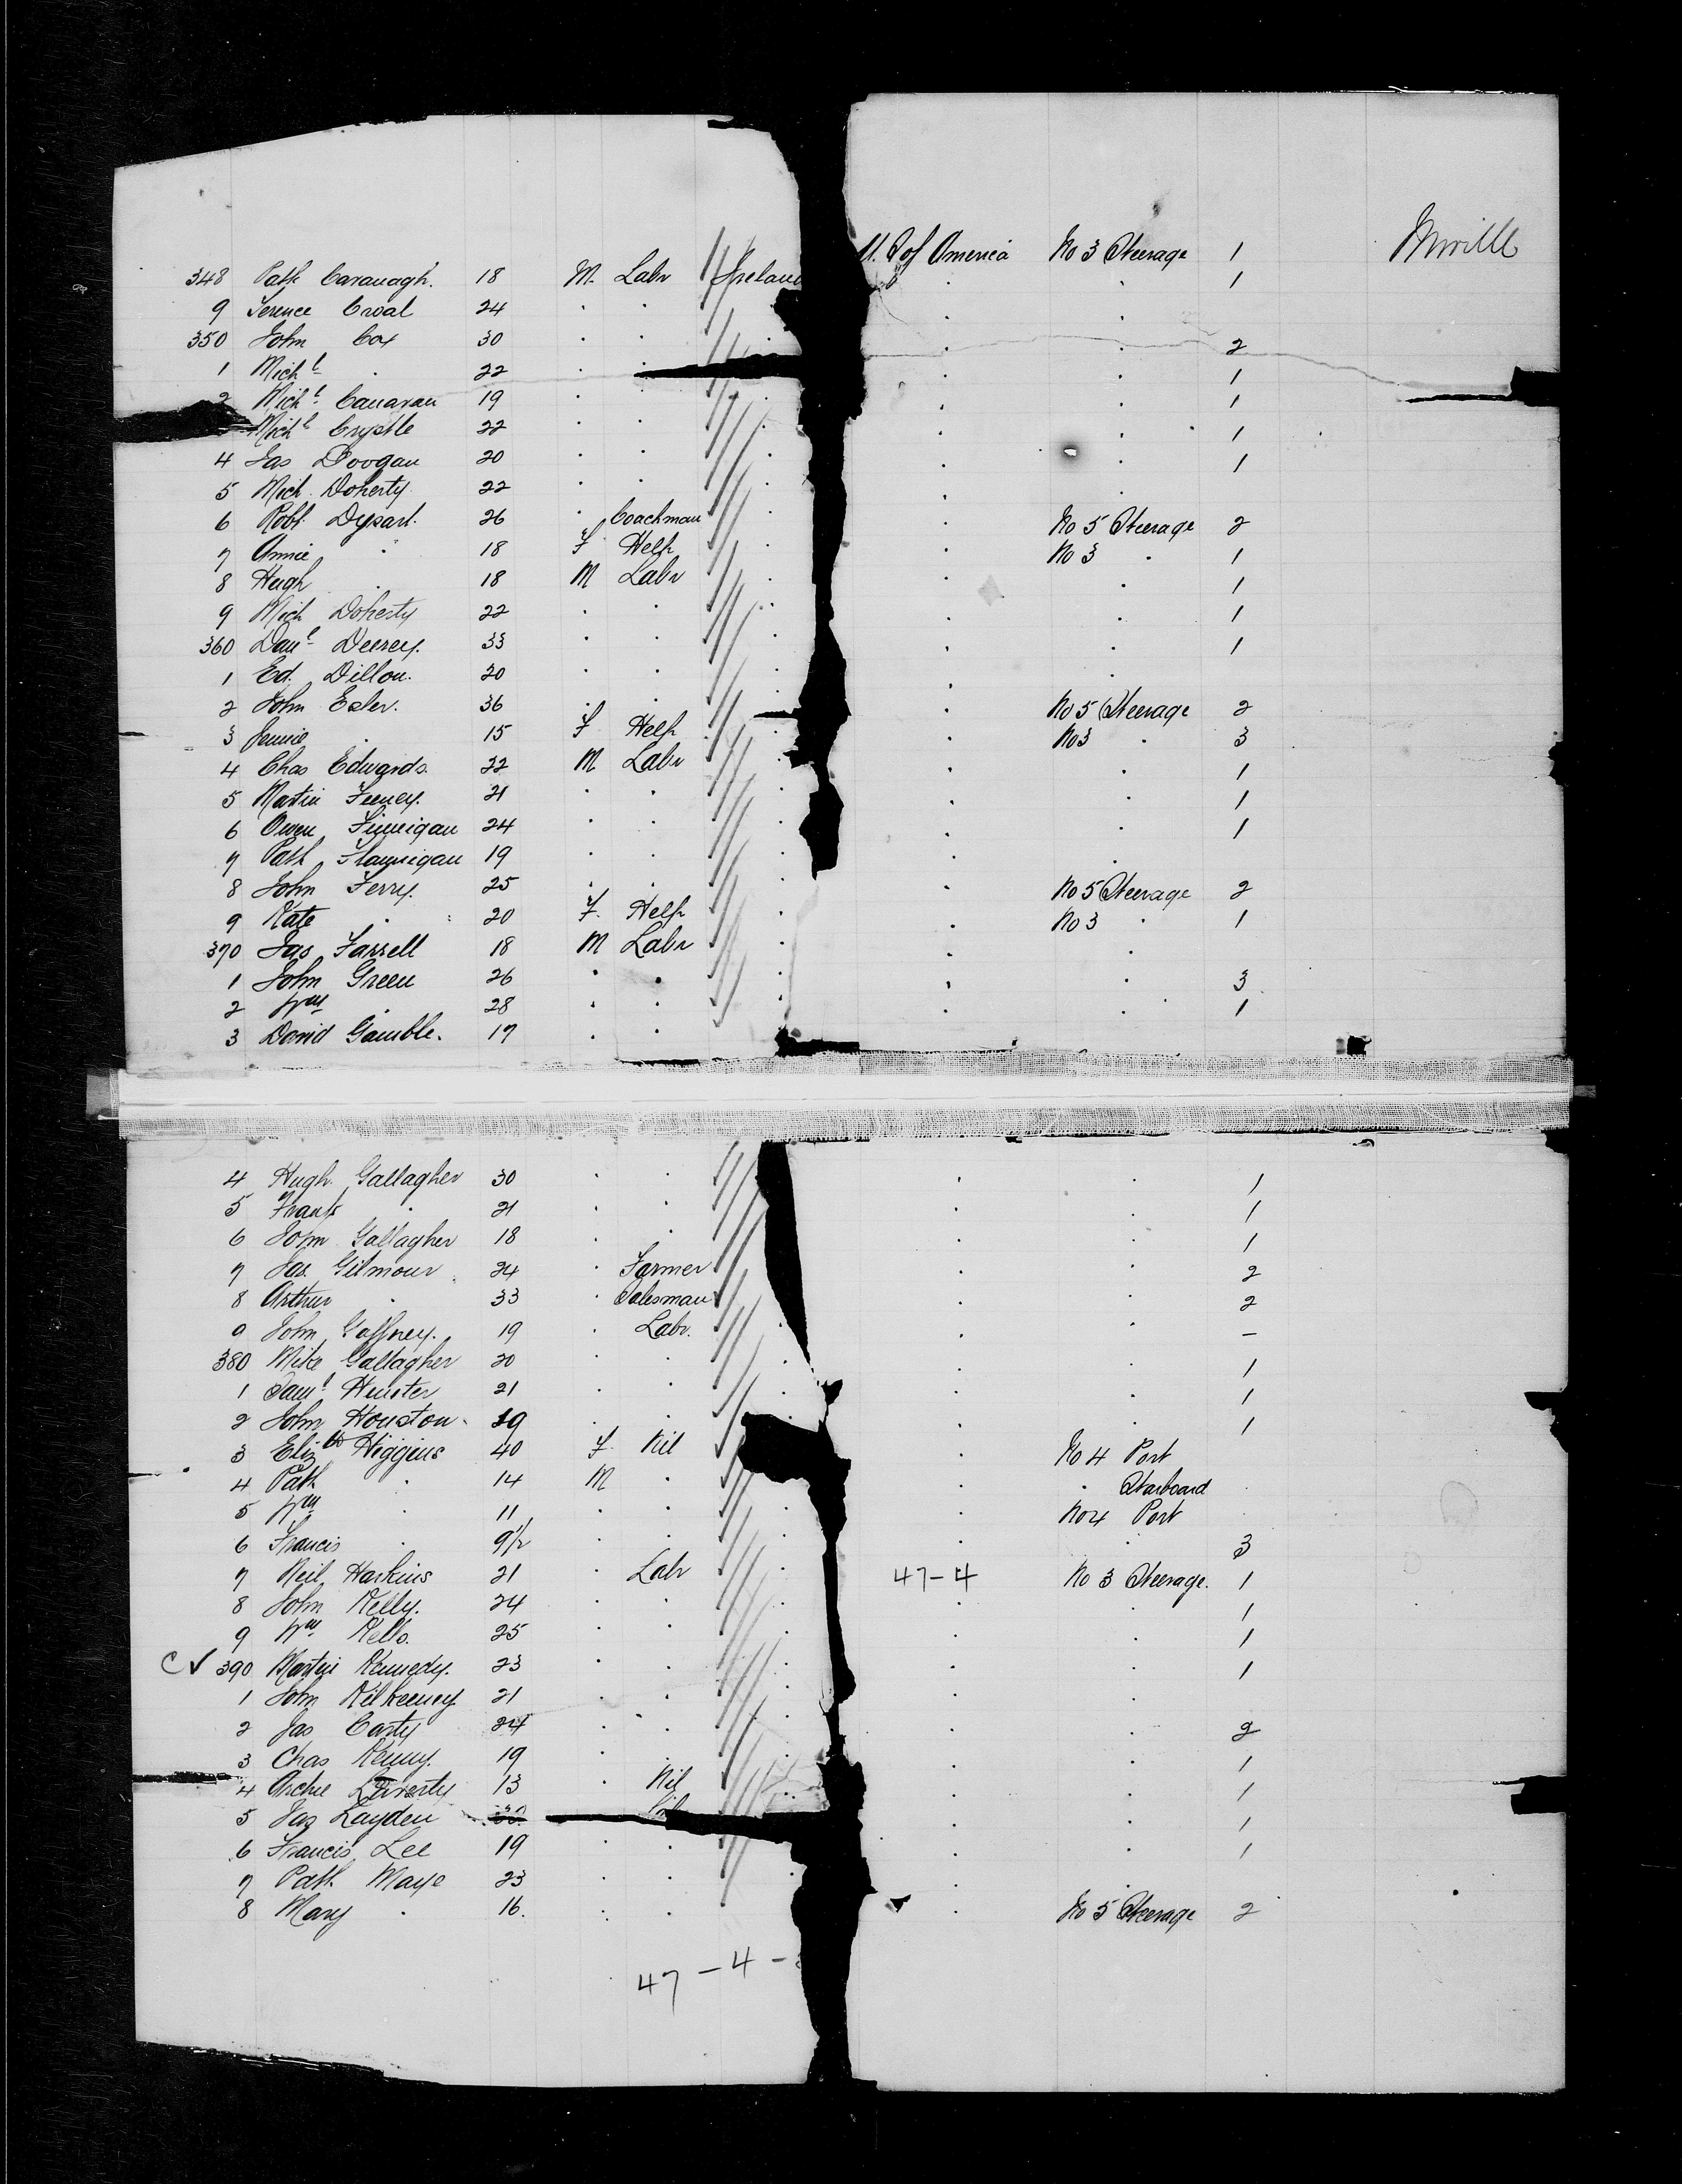 U. S of America No 3 Steerage 1 Inville
348 Patk Cavanagh. 18 M. Labr Ireland . . 1
9 Terence Croal 24 . . . .
350 John Cox 30 . . . . 2
1 Michl . 22 . . . 1
2 Michl Canavan 19 . . . . 1
Michl Crystle 22 . . . . 1
4 Jas Doogan 20 . . . . 1
5 Mich. Doherty 22 . . . .
6 Robt. Dysart. 26 . Coachman . No 5 Steerage 2
7 Annie " 18 F Help . No 3 . 1
8 Hugh . 18 M Labr . . 1
9 Mich Doherty 22 . . . . 1
360 Danl Deerey. 33 . . . . 1
1 Ed. Dillon. 20 . . . .
2 John Esler. 36 . . . No 5 Steerage 2
3 Jennie . 15 F Help . No 3 . 3
4 Chas Edwards. 22 M Labr . . 1
5 Martin Feeney. 21 . . . . 1
6 Owen Finnigan 24 . . . . 1
7 Patk Flannigan 19 . . . .
8 John Ferry. 25 . . . No 5 Steerage 2
9 Kate . 20 F. Help . No 3 . 1
370 Jas Farrell 18 M Labr . .
1 John Green 26 . . . . 3
2 Wm . 28 . . . . 1
3 David Gamble. 17 . .
4 Hugh Gallagher 30 . . . . 1
5 Frank . 21 . . . . 1
6 John Gallagher 18 . . . . 1
7 Jas. Gilmour 24 . Farmer . . 2
8 Arthur . 33 . Salesman . . 2
9 John Gaffney. 19 . Labr. . . –
380 Mike Gallagher 20 . . . . 1
1 Saml Hunter 21 . . . . 1
2 John Houston 19 . . . . 1
3 Elizth Higgins 40 F. Nil . No 4 Port
4 Patk . 14 M . . . Starboard
5 Wm . 11 . . . No 4 Port
6 Francis . 9 1/2 . . . . 3
7 Neil Harkins 21 . Labr 47-4 No 3 Steerage. 1
8 John Kelly. 24 . . . . 1
9 Wm Kells. 25 . . . . 1
C ✓ 390 Martin Kennedy. 23 . . . . 1
1 John Kilkenney 21 . . . .
2 Jas Carty 24 . . . . 2
3 Chas Kenny. 19 . . . . 1
4 Archie Laverty 13 . Nil . . 1
5 Jas Layden . . 1
6 Francis Lee 19 . . . . 1
7 Patk Maye 23 . . . .
8 Mary . 16. . . . No 5 Steerage 2
47-4-